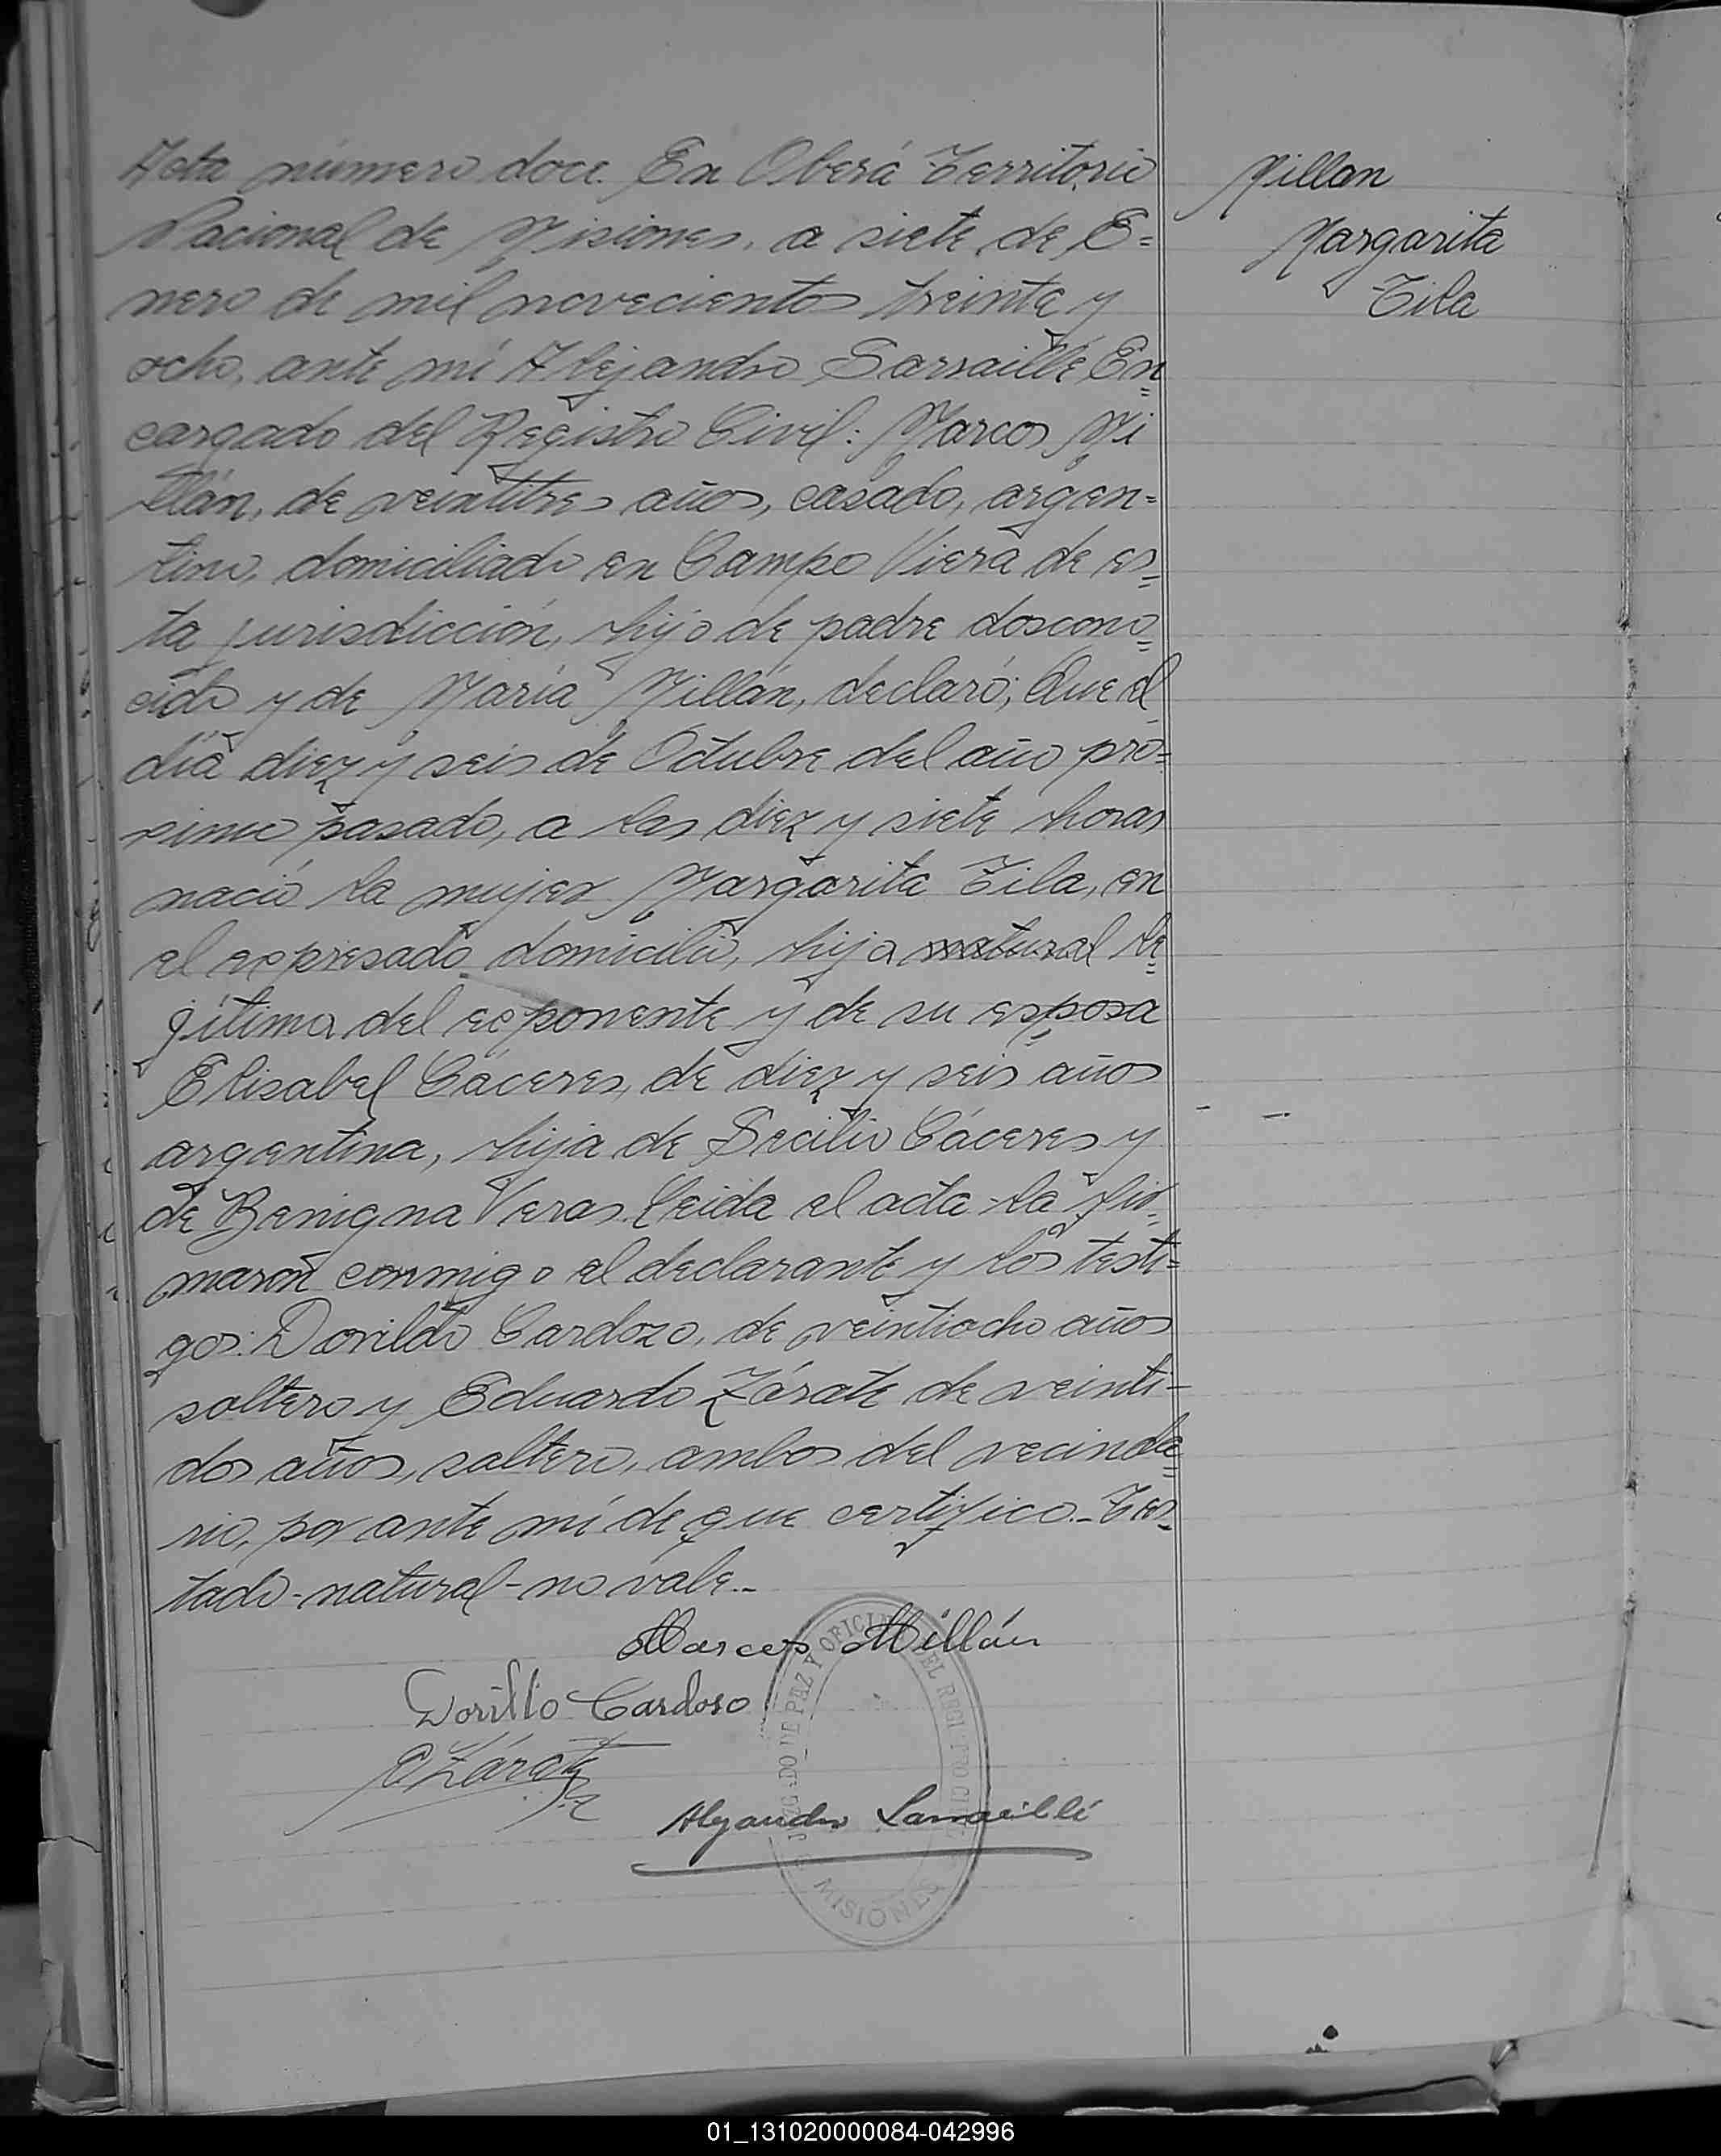 Acta número doce. En Oberá Territorio
Nacional de Misiones, a siete de E=
nero de mil novecientos treinta y
ocho, ante mí Alejandro Sarraillé En=
cargado del Registro Civil: Marcos Mi
llán, de veintitres años, casado, argen=
tino, domiciliado en Campo Viera de es=
ta jurisdicción, hijo de padre descono=
cido y de María Millán, declaró; Que el
día diez y seis de Octubre del año pró=
ximo pasado, a las diez y siete horas
nació la mujer Margarita Tila, en
el expresado domicilio, hija natural le=
gítima del exponente y de su esposa
Elisabel Cáceres, de diez y seis años
argentina, hija de Secilio Cáceres y
de Benigna Veras. Leida el acta la fir=
maron conmigo el declarante y los testi=
gos: Dorildo Cardozo, de veintiocho años
soltero y Eduardo Zárate de veinti-
dos años, soltero, ambos del vecinda=
rio, por ante mí de que certifico.- Tes=
tado-natural-no vale.-
Marcos Millán
Cardoso
EZárate
Alejandro Sarraillé
JUZGADO DE PAZ Y OFICINA DEL REGISTRO CIVIL
MISIONES
Millan
Margarita
Tila
01_131020000084-042996